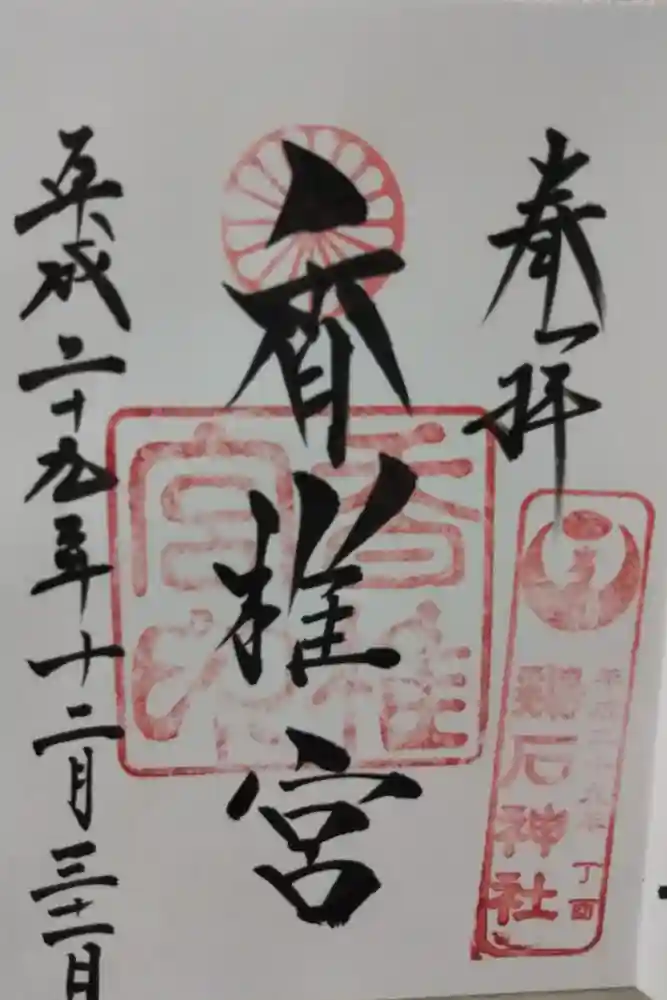 奉拝
平成二十九年 丁酉
鶏石神社
香椎宮
平成二十九年十二月三十一日